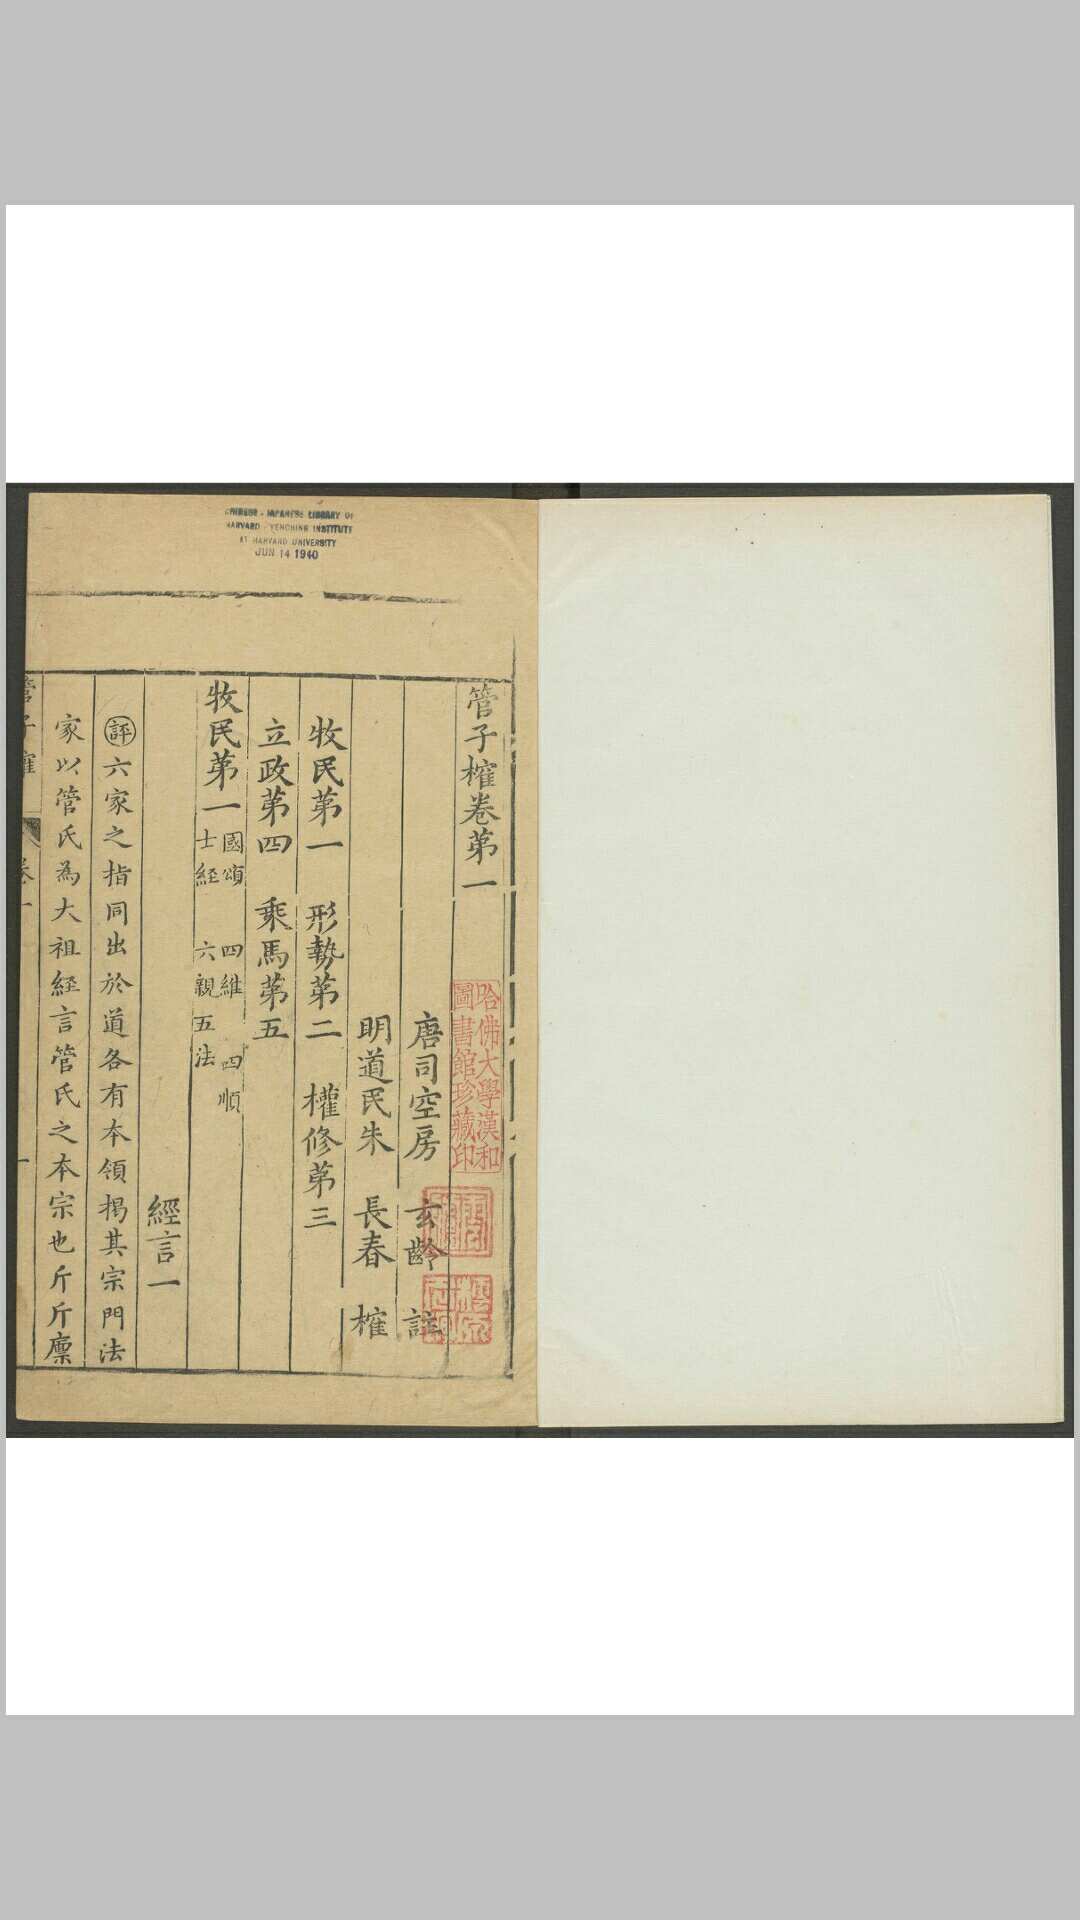 CHINESE - JAPANESE LIBRARY OF
HARVARD - YENCHING INSTITUTE
AT HARVARD UNIVERSITY
JUN 14 1940
管子榷卷第一
哈佛大學漢和
圖書館珍藏印
唐司空房玄齡註
明道民朱長春榷
牧民第一 形勢第二 權修第三
立政第四 乘馬第五
牧民第一 國頌 四維 四順
士経 六親五法
經言一
評六家之指同出於道各有本領掲其宗門法
家以管氏為大祖経言管氏之本宗也斤斤廪
管子榷 卷一
一